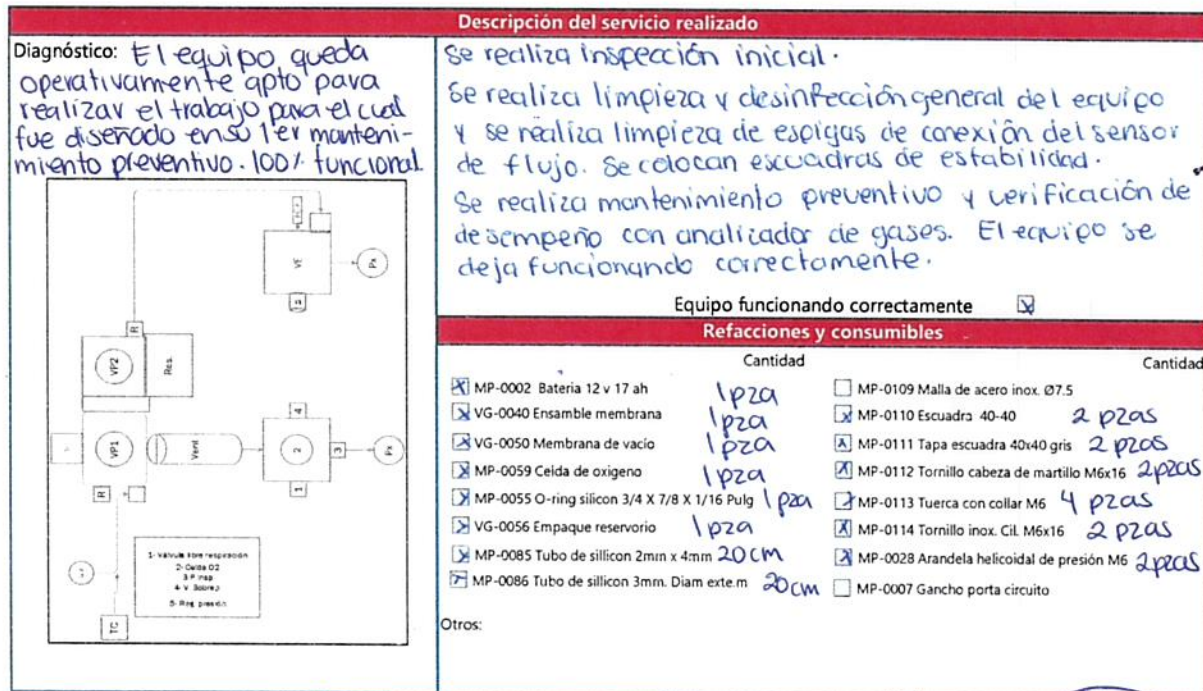 Descripción del servicio realizado
Diagnóstico: El equipo queda
operativamente apto para
realizar el trabajo para el cual
fue diseñado en su 1er manteni-
miento preventivo. 100% funcional
Se realiza inspección inicial.
Se realiza limpieza y desinfección general del equipo
y se realiza limpieza de espigas de conexión del sensor
de flujo. Se colocan escuadras de estabilidad.
Se realiza mantenimiento preventivo y verificación de
desempeño con analizador de gases. El equipo se
deja funcionando correctamente.
Equipo funcionando correctamente
VE
Pa
5
R
VP2
Res.
VP1
Vent
4
2
3
1
Pa
R
TC
1- Válvula libre respiración
2- Celda O2
3 P insp
4- V. Sobrep
5- Reg. presión
Refacciones y consumibles
Cantidad
Cantidad
MP-0002 Bateria 12 v 17 ah 1 pza
VG-0040 Ensamble membrana 1 pza
VG-0050 Membrana de vacío 1 pza
MP-0059 Celda de oxigeno 1 pza
MP-0055 O-ring silicon 3/4 X 7/8 X 1/16 Pulg 1 pza
VG-0056 Empaque reservorio 1 pza
MP-0085 Tubo de sillicon 2mm x 4mm 20 cm
MP-0086 Tubo de sillicon 3mm. Diam exte.m 20 cm
MP-0109 Malla de acero inox. Ø7.5
MP-0110 Escuadra 40-40 2 pzas
MP-0111 Tapa escuadra 40x40 gris 2 pzas
MP-0112 Tornillo cabeza de martillo M6x16 2pzas
MP-0113 Tuerca con collar M6 4 pzas
MP-0114 Tornillo inox. Cil. M6x16 2 pzas
MP-0028 Arandela helicoidal de presión M6 2pzas
MP-0007 Gancho porta circuito
Otros: